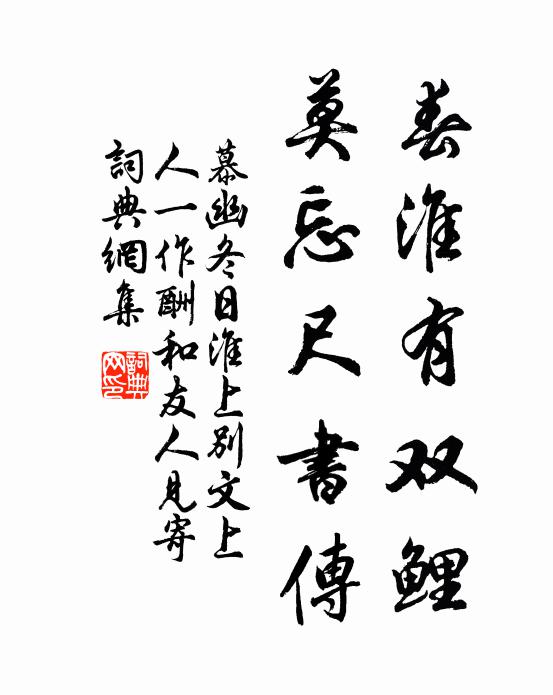 春淮有双鯉
莫忘尺書傳
慕幽冬日淮上別文上
人一作酬和友人見寄
詞典網集
詞典
网印